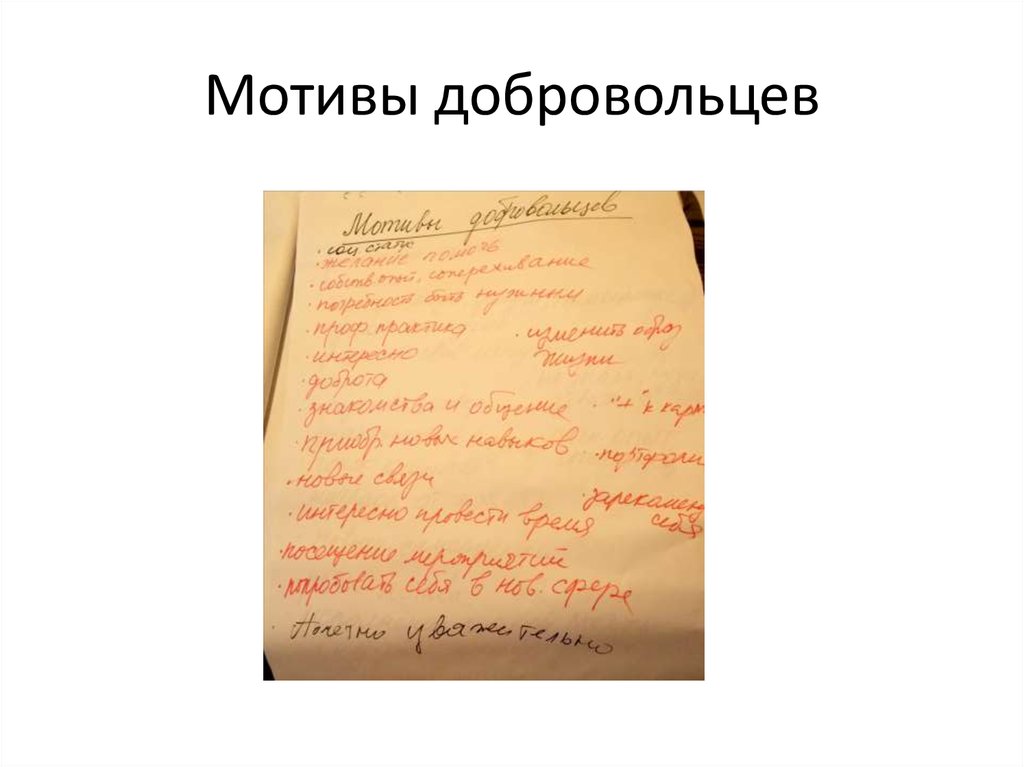 Мотивы добровольцев
Мотивы добровольцев
· соц. статус
· желание помочь
· собств. опыт, сопереживание
· потребность быть нужным
· проф. практика
· изменить образ
жизни
· интересно
· доброта
· знакомства и общение
· "+" к карм
· приобр. новых навыков
· портфоли
· новые связи
· зарекомен
себя
· интересно провести время
· посещение мероприятий
· попробовать себя в нов. сфере
· Почетно уважительно